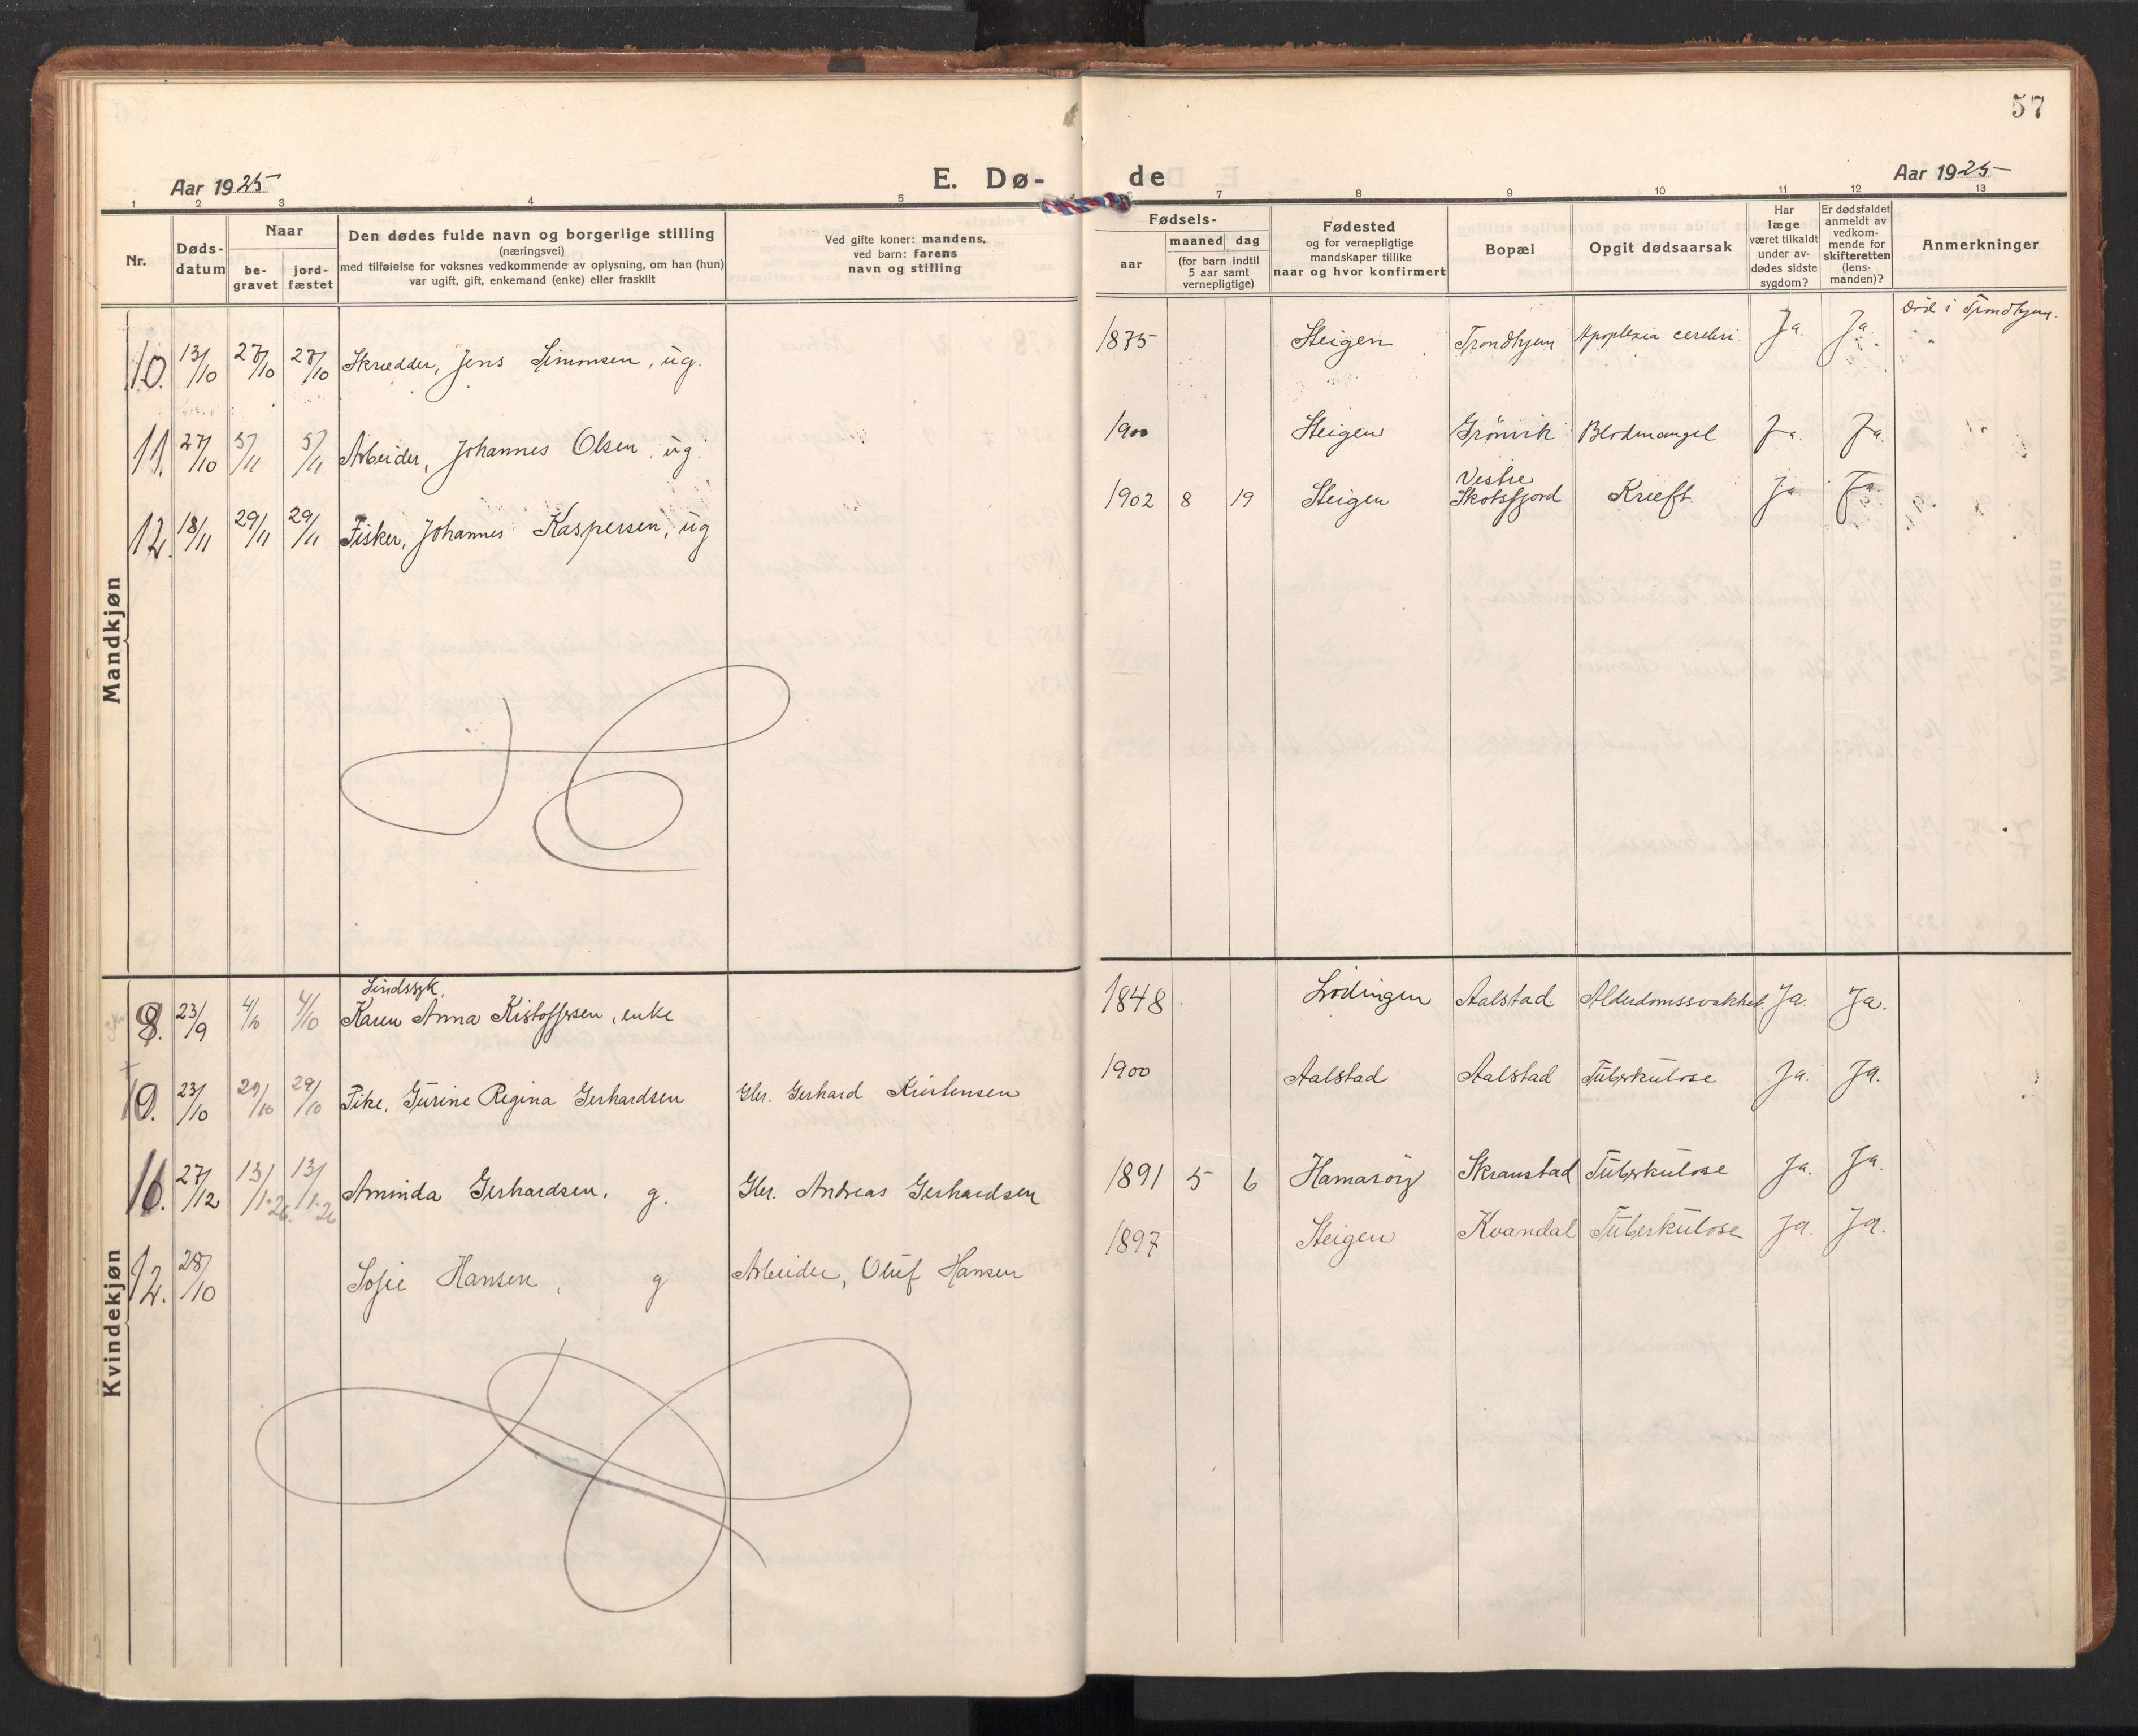 57
Aar 1925
E. Dø-
de
Aar 1925
1 2 3 4 5 6 7 8 9 10 11 12 13
Nr.
Døds-
datum
Naar
be-
gravet
jord-
fæstet
Den dødes fulde navn og borgerlige stilling
(næringsvei)
med tilføielse for voksnes vedkommende av oplysning, om han (hun)
var ugift, gift, enkemand (enke) eller fraskilt
Ved gifte koner: mandens,
ved barn: farens
navn og stilling
Fødsels-
aar
maaned dag
(for barn indtil
5 aar samt
vernepligtige)
Fødested
og for vernepligtige
mandskaper tillike
naar og hvor konfirmert
Bopæl
Opgit dødsaarsak
Har
læge
været tilkaldt
under av-
dødes sidste
sygdom?
Er dødsfaldet
anmeldt av
vedkom-
mende for
skifteretten
(lens-
manden)?
Anmerkninger
Mandkjøn
10. 13/10 27/10 27/10 Skrædder, Jens Simonsen, ug. 1875 Steigen Trondhjem Apoplexia cerebri Ja. Ja. Død i Trondhjem.
11. 27/10 5/11 5/11 Arbeider, Johannes Olsen, ug. 1900 Steigen Grönvik Blodmangel Ja. Ja.
12. 18/11 29/11 29/11 Fisker, Johannes Kaspersen, ug 1902 8 19 Steigen Vestre Skotsfjord Kræft. Ja Ja.
Kvindekjøn
Sindssyk.
23/9 4/10 4/10 Karen Anna Kistoffersen, enke 1848 Lödingen Aalstad Alderdomssvakhet. Ja. Ja.
10. 23/10 29/10 29/10 Pike, Gurine Regina Gerhardsen Gbr. Gerhard Kristensen 1900 Aalstad Aalstad Tuberkulose Ja. Ja.
27/12 13/1.26. 13/1.26 Aminda Gerhardsen, g. Gbr. Andreas Gerhardsen 1891 5 6 Hamaröy Skranstad Tuberkulose Ja. Ja.
12. 28/10 Sofie Hansen, g Arbeider, Oluf Hansen 1897 Steigen Kvandal Tuberkulose Ja. Ja.